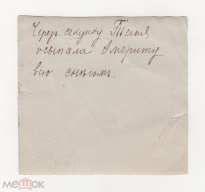 Через секунду Таня
осыпала Америту
всю снѣгомъ.
МЕШОК